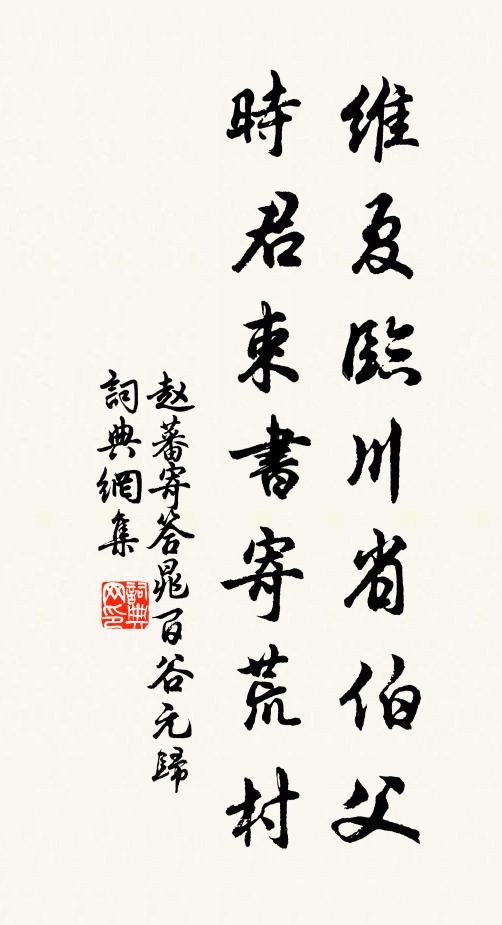 維夏臨川省伯父
時君東書寄荒村
赵蕃寄答晁百谷元歸
詞典網集
詞典网印